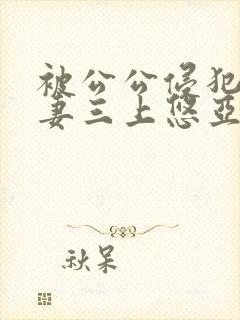 被公公侵犯
妻三上悠亚
秋呆